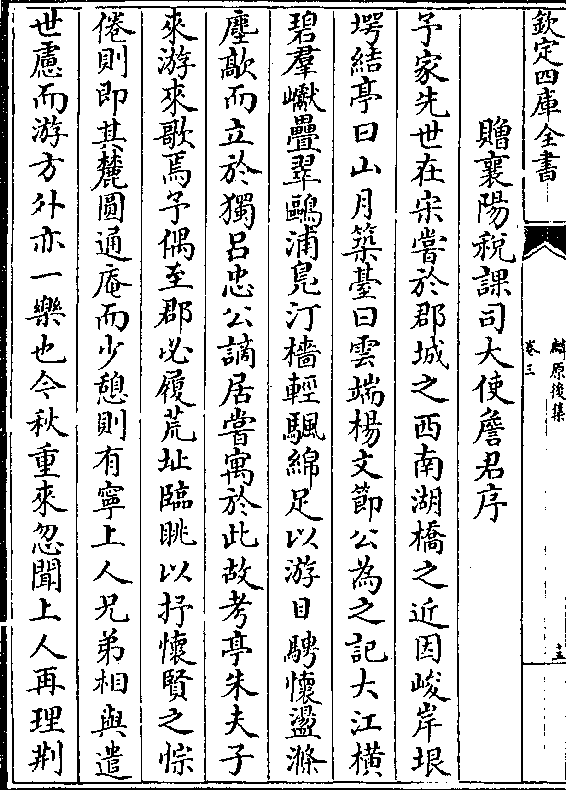 欽定四庫全書
麟原後集
卷三
十五
贈襄陽稅課司大使詹君序
予家先世在宋嘗於郡城之西南湖橋之近因峻岸垠
堮結亭曰山月築臺曰雲端楊文節公為之記大江橫
碧羣巘疊翠鷗浦鳧汀檣輕颿綿足以游目騁懷盪滌
塵歊而立於獨呂忠公謫居嘗寓於此故考亭朱夫子
來游來歌焉予偶至郡必履荒址臨眺以抒懷賢之悰
倦則即其麓圓通庵而少憩則有寧上人兄弟相與遣
世慮而游方外亦一樂也今秋重來忽聞上人再理荆